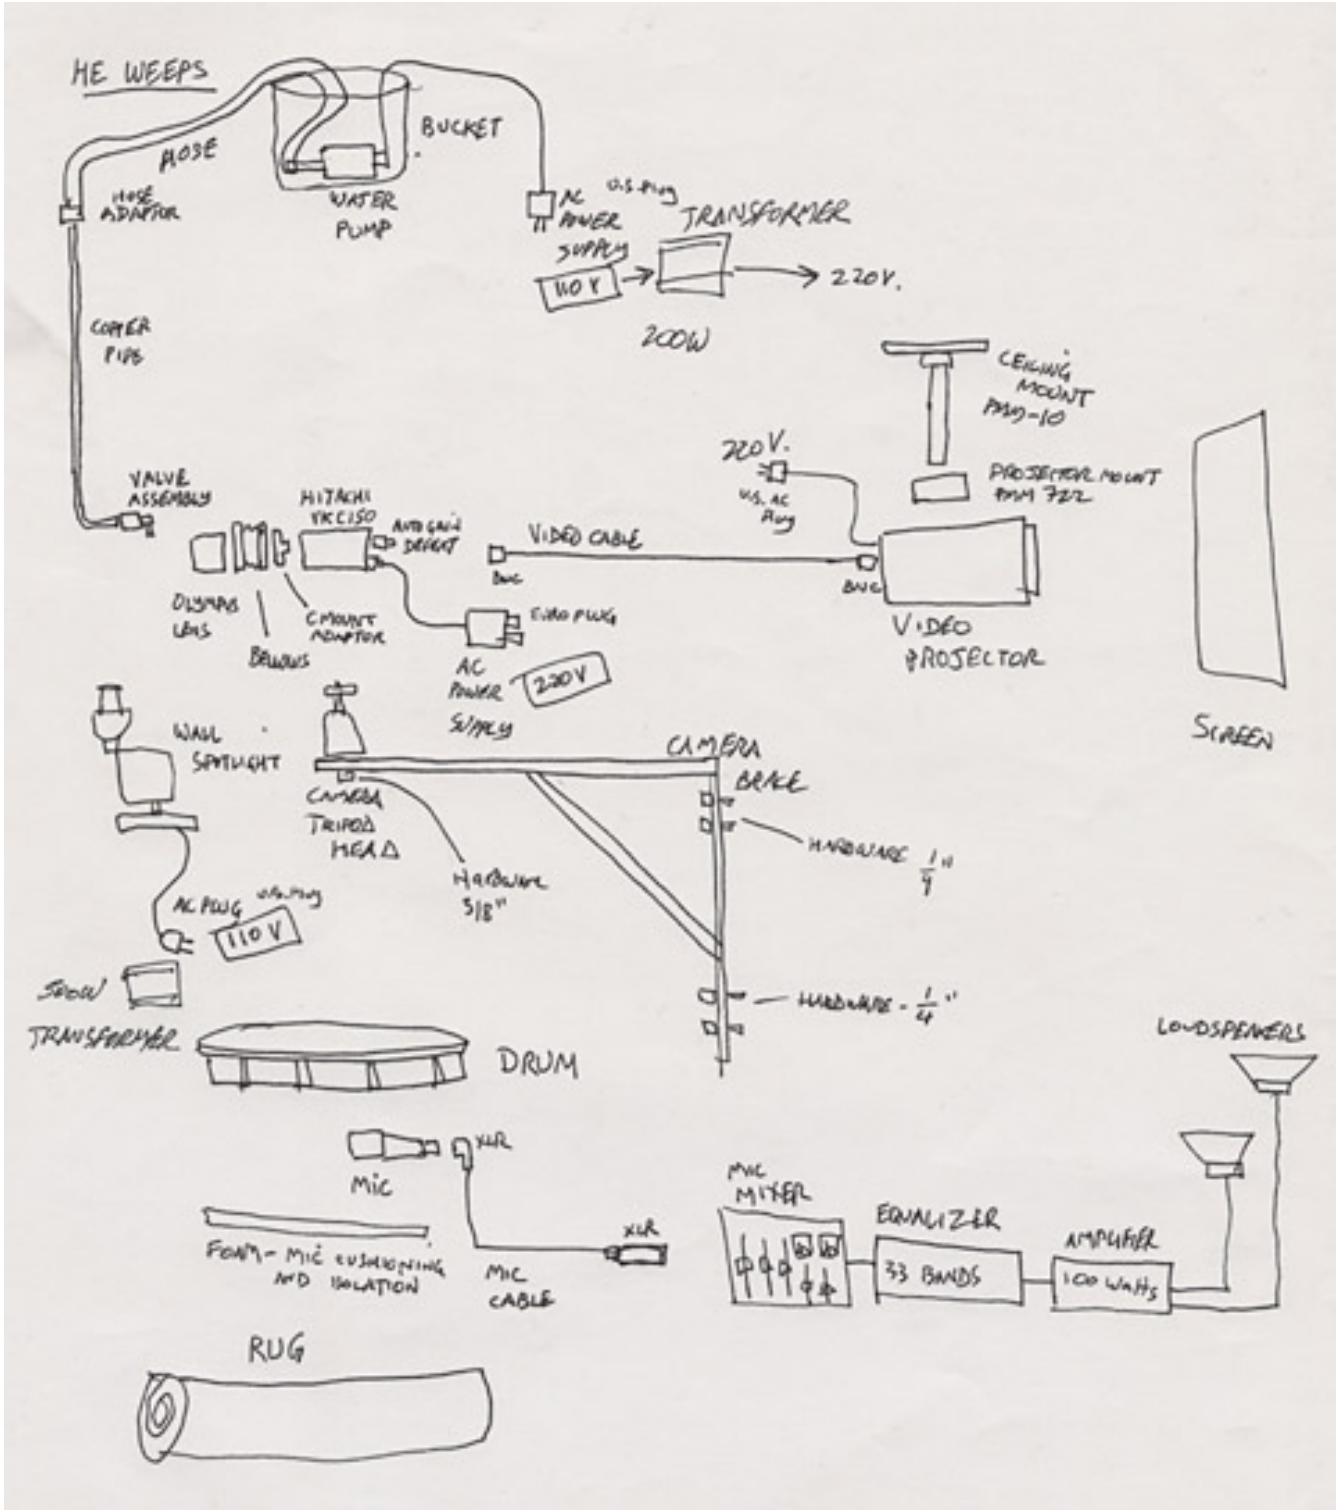 HE WEEPS
HOSE
BUCKET
HOSE
ADAPTOR
WATER
PUMP
AC
POWER
SUPPLY
U.S. Plug
TRANSFORMER
110 V
220V.
200W
COPPER
PIPE
CEILING
MOUNT
PROJECTOR MOUNT
722
220V.
U.S. AC
Plug
VALVE
ASSEMBLY
HITACHI
AUTO GAIN
VIDEO CABLE
BNC
BNC
OLYMPUS
LENS
C MOUNT
ADAPTOR
BELLOWS
EURO PLUG
AC
POWER
SUPPLY
220V
VIDEO
PROJECTOR
SCREEN
WALL
SPOTLIGHT
CAMERA
BRACE
CAMERA
TRIPOD
HEAD
HARDWARE
3/8"
HARDWARE 1/4"
AC PLUG
U.S. Plug
110 V
TRANSFORMER
HARDWARE - 1/4"
DRUM
LOUDSPEAKERS
MIC
XLR
FOAM - MIC CUSHIONING
AND ISOLATION
MIC
CABLE
XLR
MIC
MIXER
EQUALIZER
33 BANDS
AMPLIFIER
100 WATTS
RUG